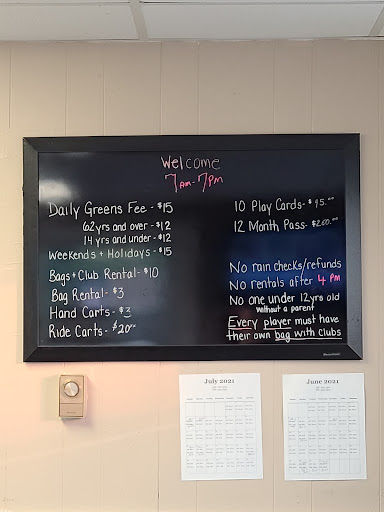 Welcome
7AM-7PM
Daily Greens Fee - $15
62yrs and over - $12
14 yrs and under - $12
Weekends + Holidays - $15
Bags + Club Rental - $10
Bag Rental - $3
Hand Carts - $3
Ride Carts - $20
10 Play Cards - $95.00
12 Month Pass - $200.00
No rain checks/refunds
No rentals after 4 PM
No one under 12yrs old
without a parent
Every player must have
their own bag with clubs
July 2021
June 2021